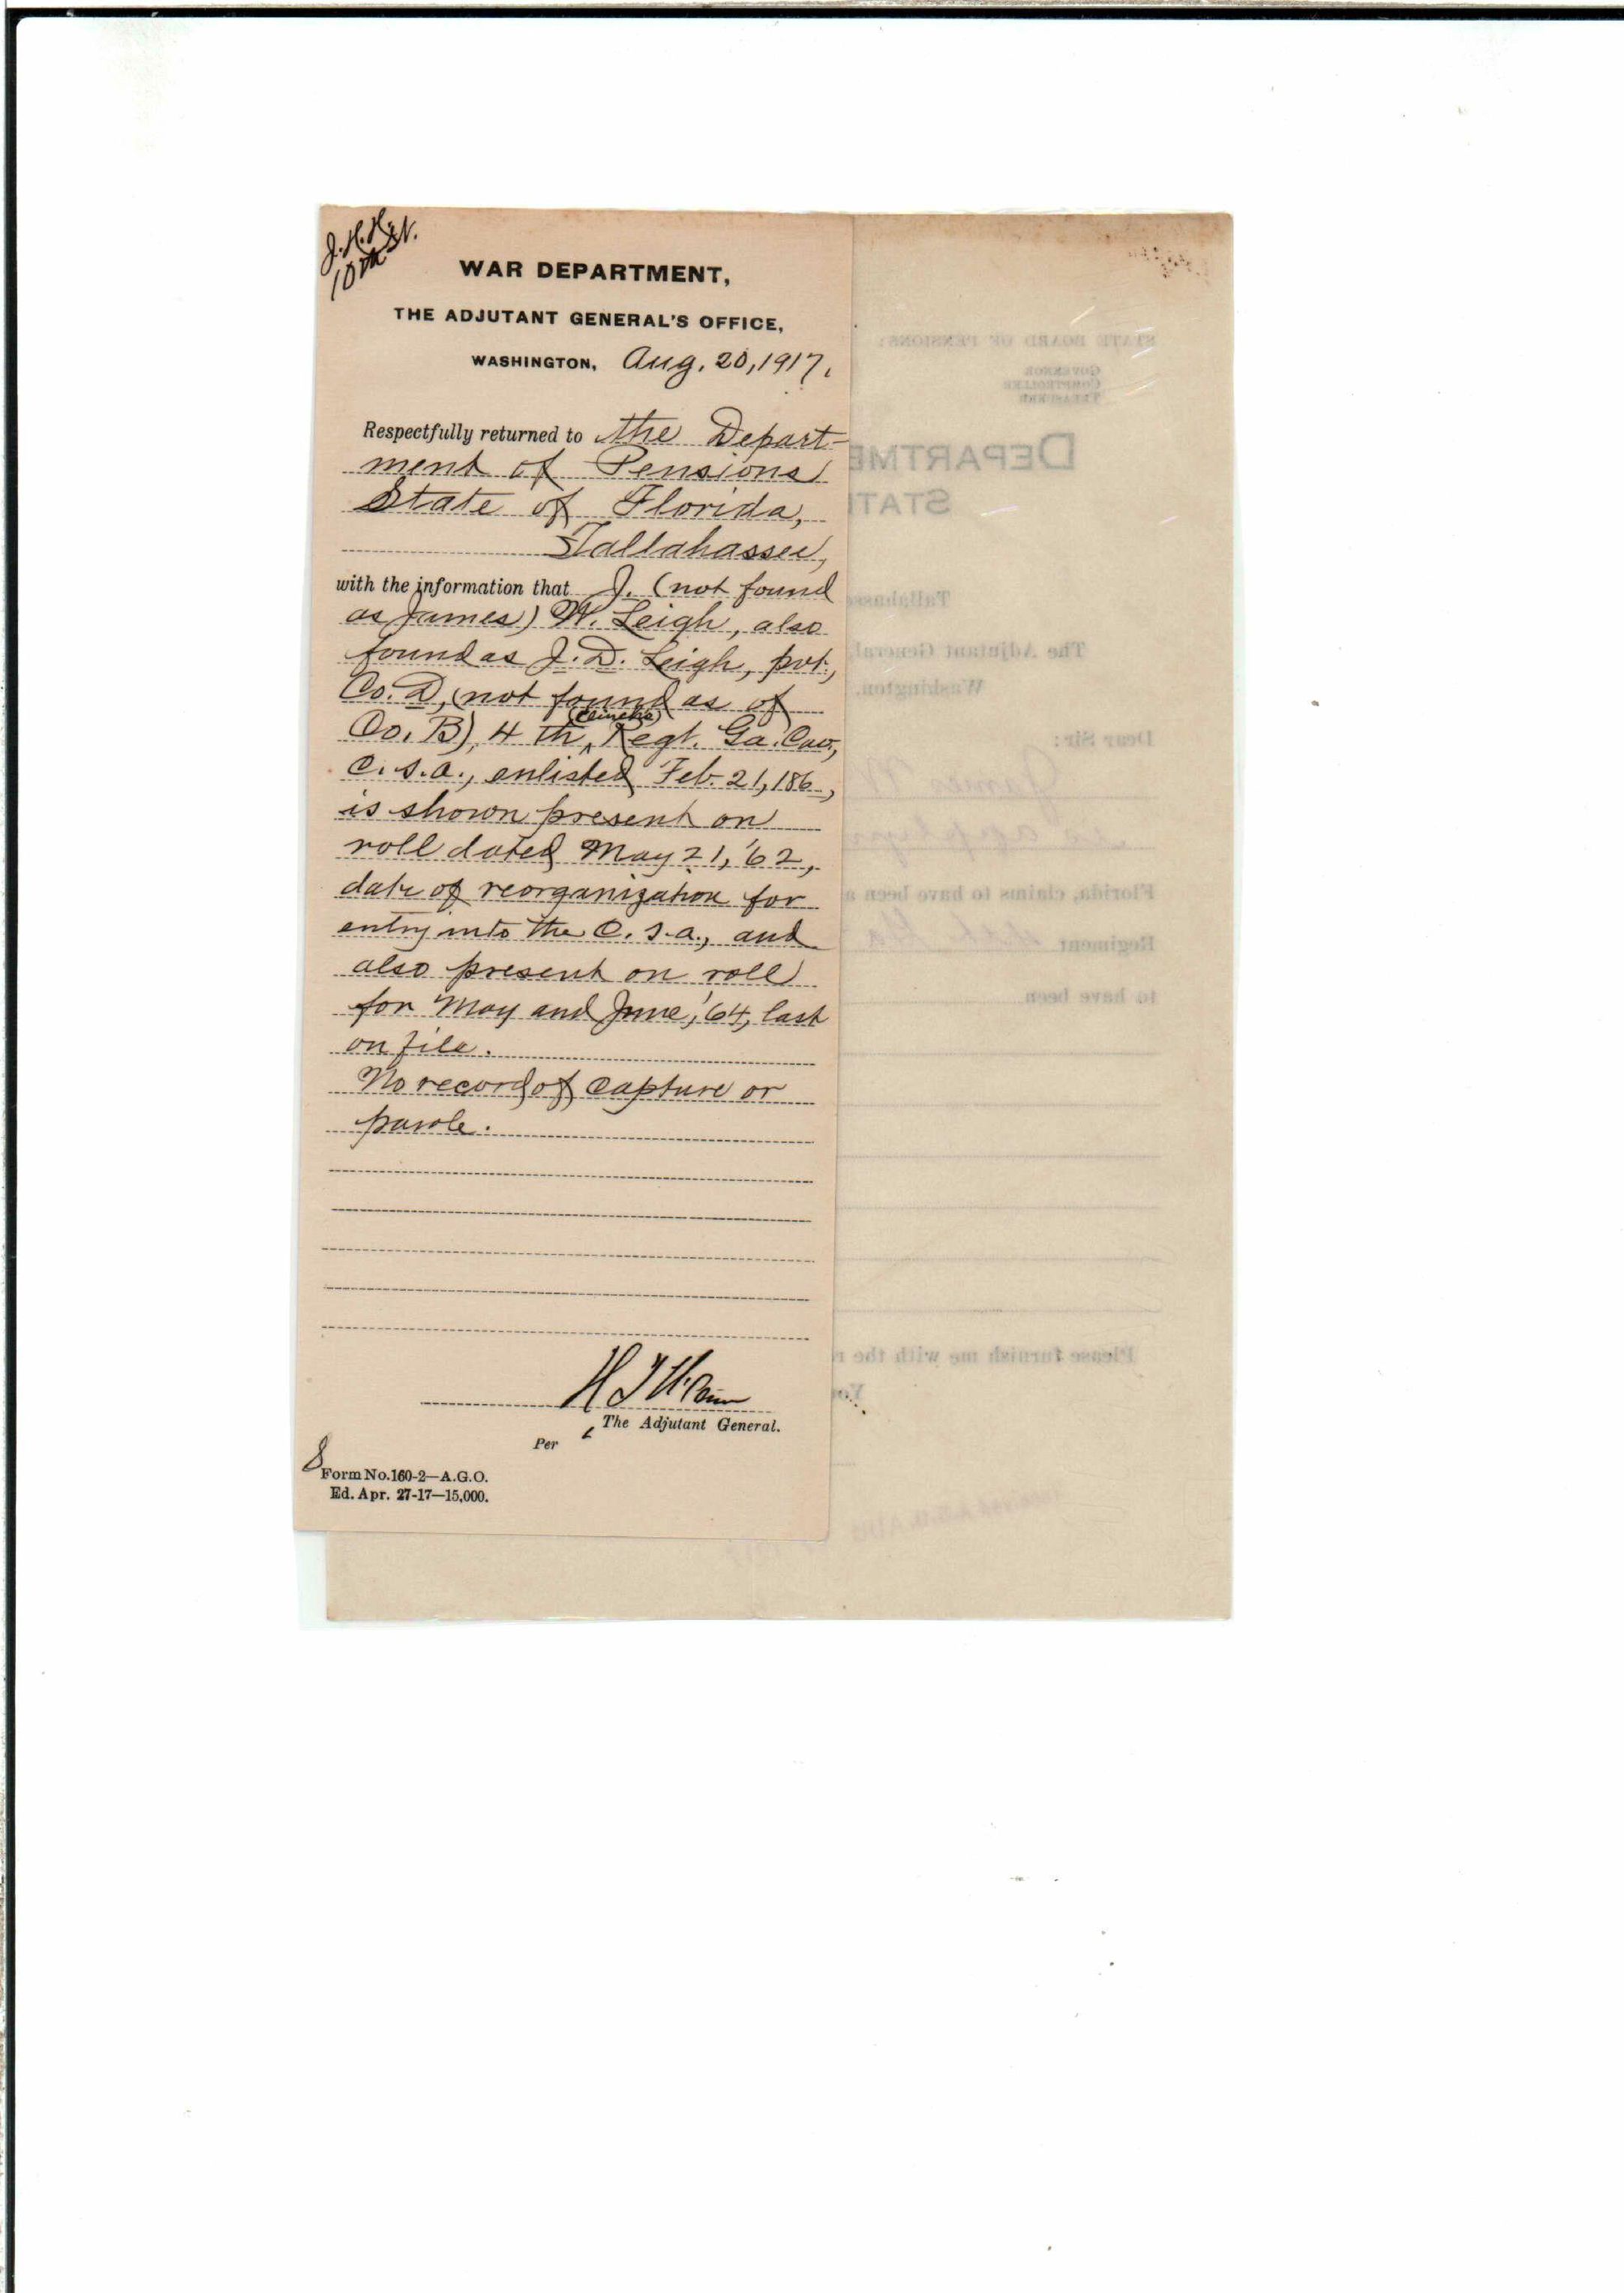 J.H.H.
10th St.
WAR DEPARTMENT,
THE ADJUTANT GENERAL'S OFFICE,
WASHINGTON, Aug. 20, 1917.
Respectfully returned to the Depart-
ment of Pensions
State of Florida,
Tallahassee,
with the information that J. (not found
as James) W. Leigh, also
found as J. D. Leigh, pvt.,
Co. D, (not found as of
(Clinch's)
Co. B), 4 th ^ Regt. Ga. Cav.,
C. S. A., enlisted Feb. 21, 186_,
is shown present on
roll dated May 21, '62,
date of reorganization for
entry into the C. S. A., and
also present on roll
for May and June, '64, last
on file.
No record of capture or
parole.
The Adjutant General.
Per
8
Form No. 160-2—A.G.O.
Ed. Apr. 27-17—15,000.
STATE BOARD OF PENSIONS:
GOVERNOR
COMPTROLLER
TREASURER
DEPARTME
STAT
Tallahass
The Adjutant General
Washington.
Dear Sir:
James
is
Florida, claims to have been a
Regiment
to have been
Please furnish me with the r
You